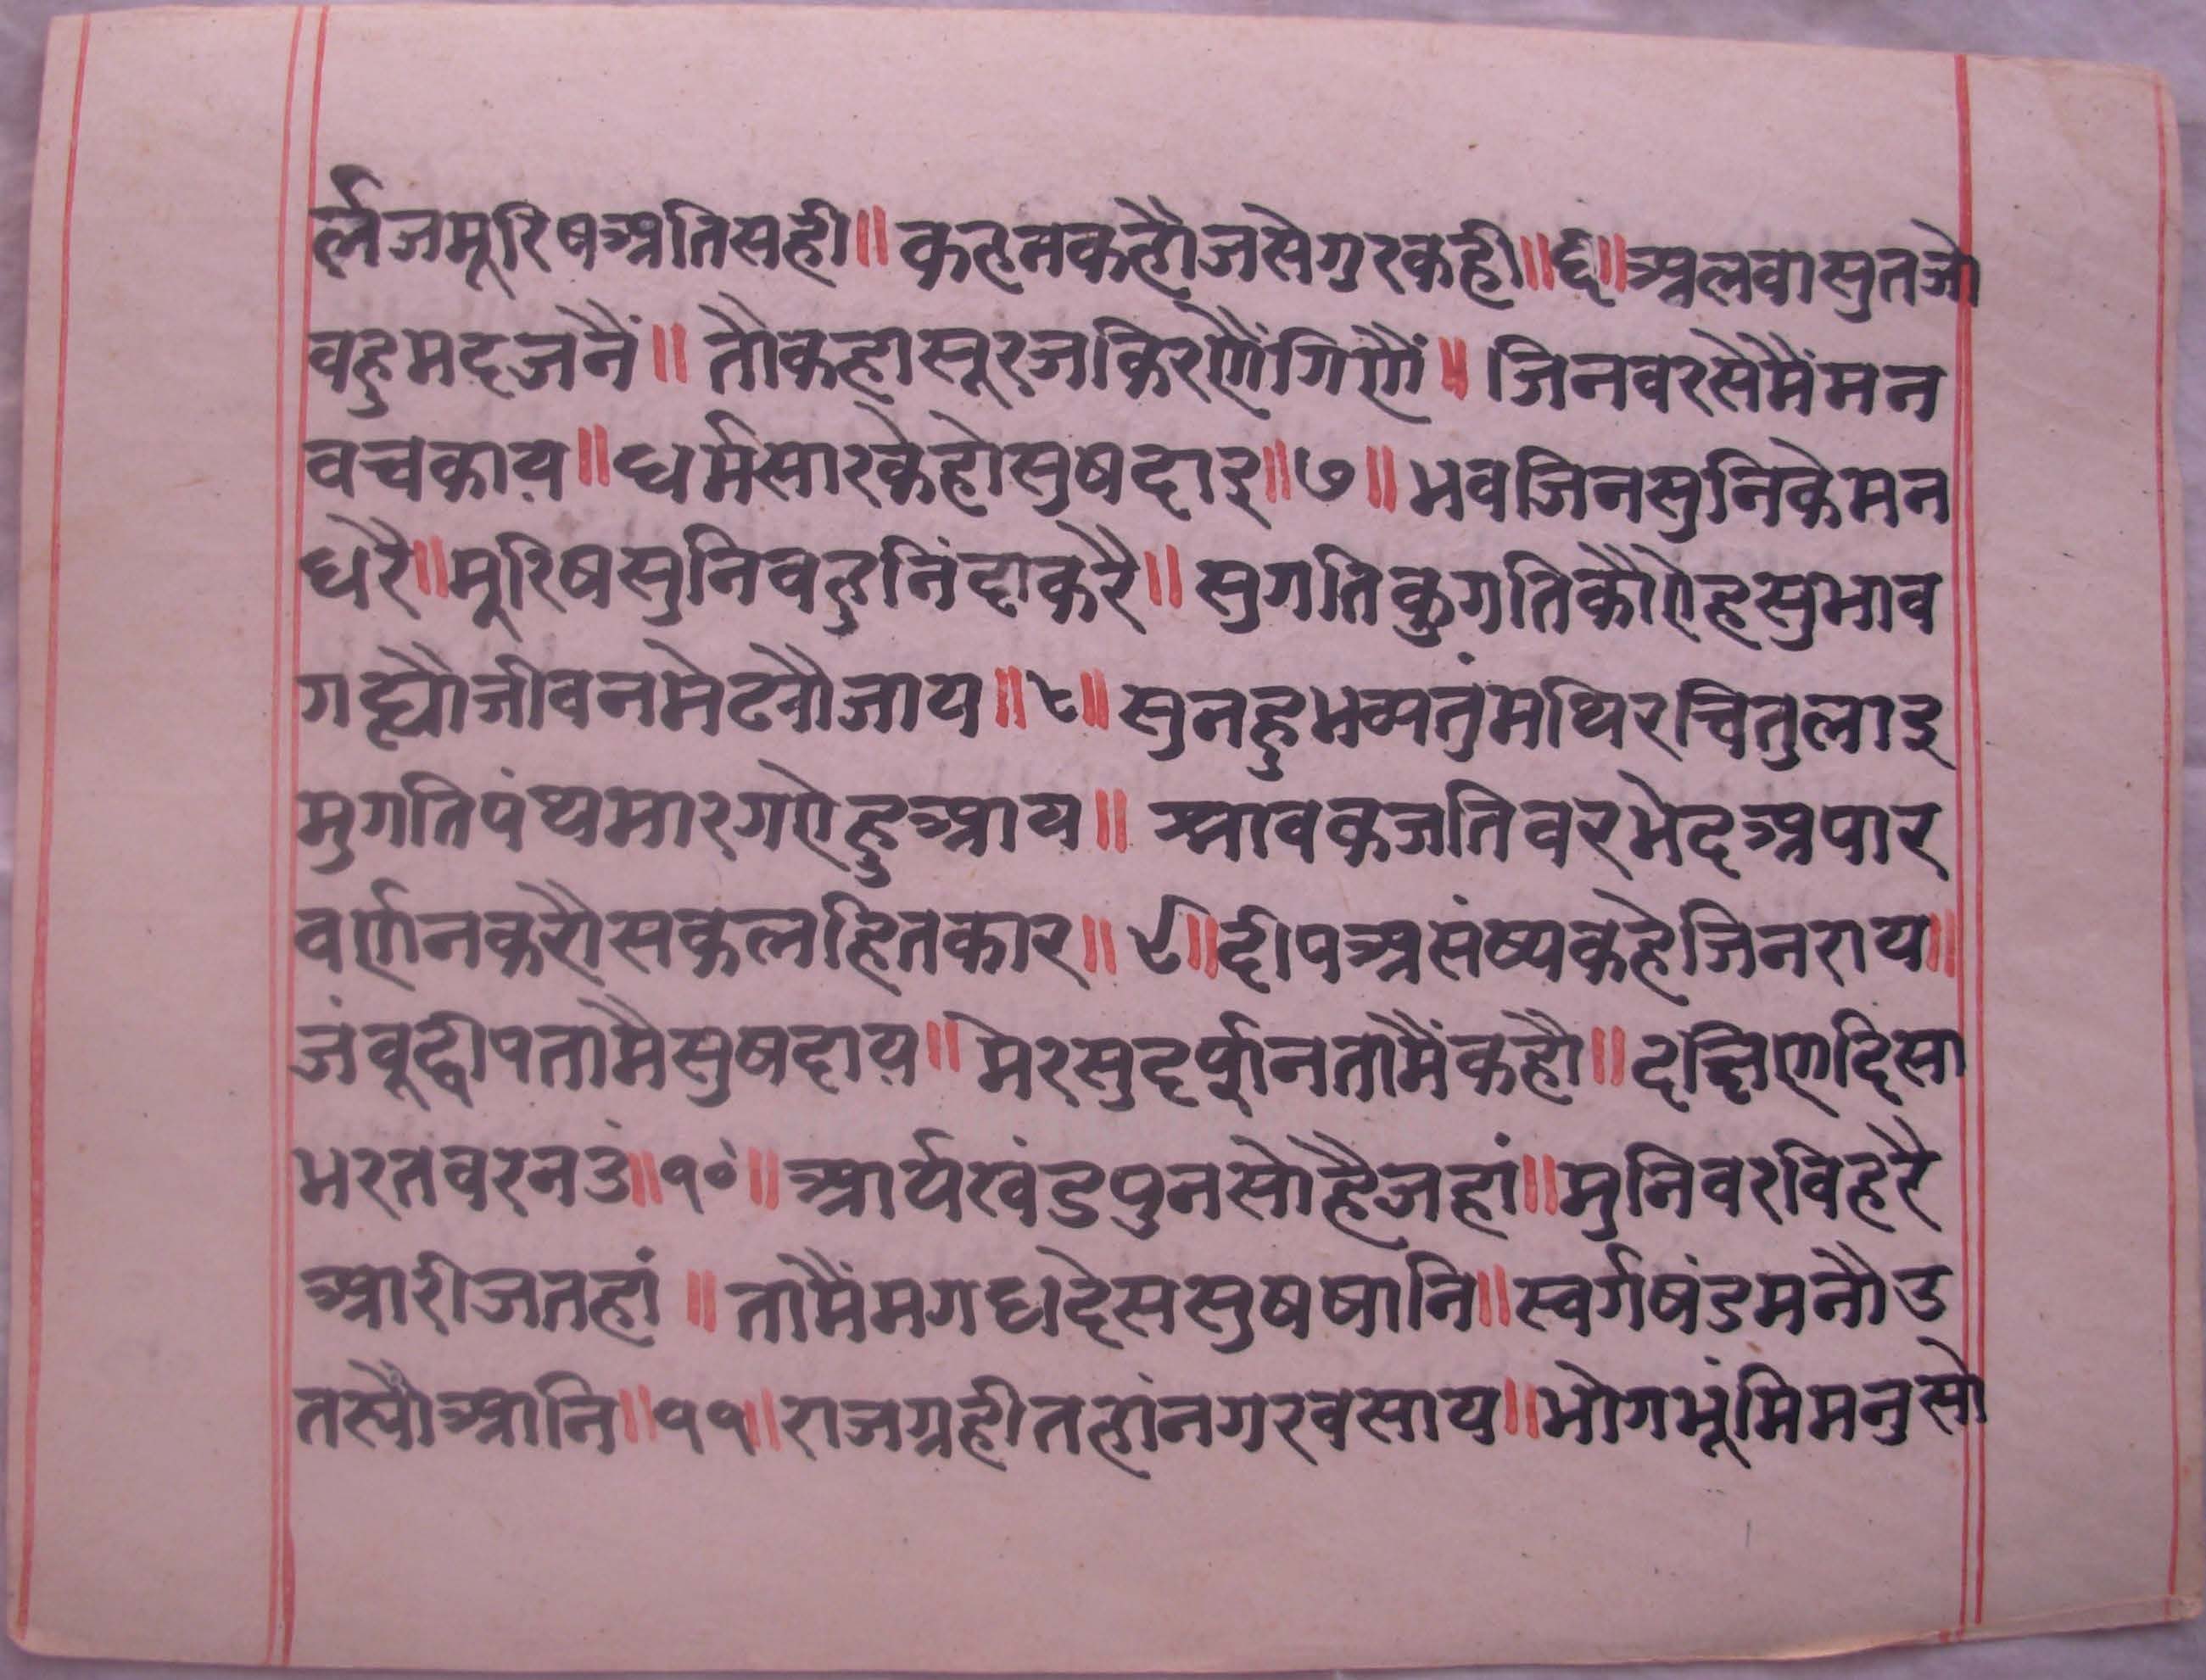 र्लजमूरिषअतिसही॥कहनकहौजसेगुरकही॥६॥अलवासुतजो
वहुमदजनैं॥तौकहासूरजकिरणैंगिणैं॥जिनवरसेमैंमन
वचकाय॥धर्मसारकेहोसुषदाइ॥७॥भवजिनसुनिकेमन
धरै॥मूरिषसुनिवहुनिंदाकरै॥सुगतिकुगतिकौऐहसुभाव
गह्यौजीवनमेटयौजाय॥८॥सुनहुभव्यतुंमथिरचितुलाइ
मुगतिपंथ्यमारगऐहुआय॥श्रावकजतिवरभेदअपार
वर्णनकरौसकलहितकार॥९॥दीपअसंष्यकहेजिनराय॥
जंवूद्वीपतामैसुषदाय॥मेरसुदर्शनतामैंकहौ॥दक्षिणदिसा
भरतवरनउं॥१०॥आर्यखंडपुनसोहैजहां॥मुनिवरविहरै
आरीजतहां॥तामैंमगधदेससुषषानि॥स्वर्गषंडमनौउ
तस्यौआनि॥११॥राजग्रहीतहांनगरवसाय॥भोगभूंमिमनुसो